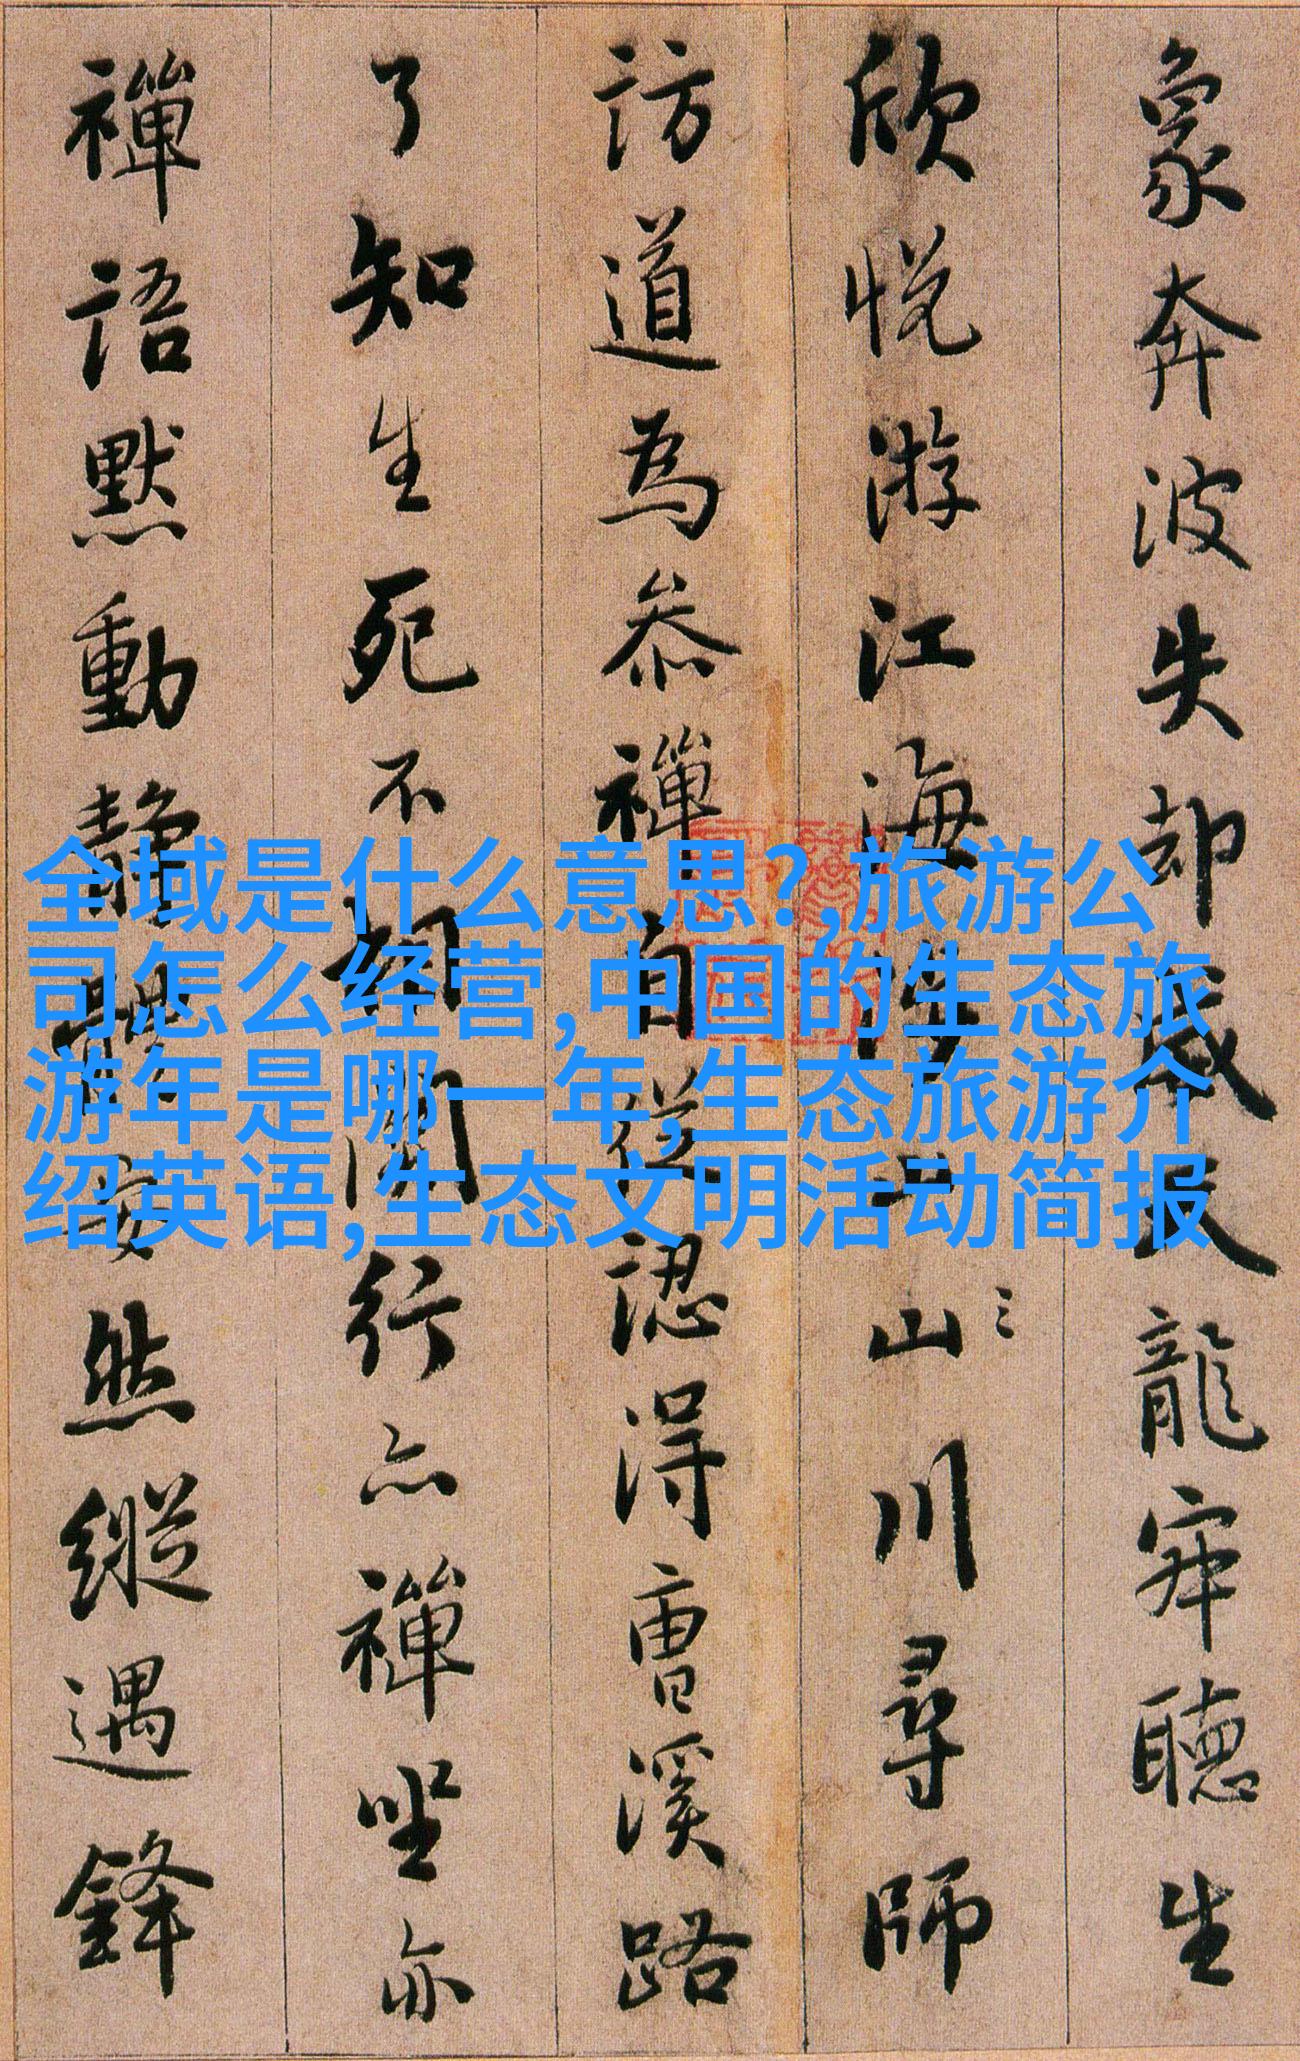 象奔波失却威天龍寂聽生
欣悦游江海涉山川尋師
訪道為參禪自從認得曹溪路
了知生死不相關行亦禪坐亦
禪語默動靜體安然縱遇鋒
全域是什么意思?,旅游公
司怎么经营,中国的生态旅
游年是哪一年,生态旅游介
绍英语,生态文明活动简报